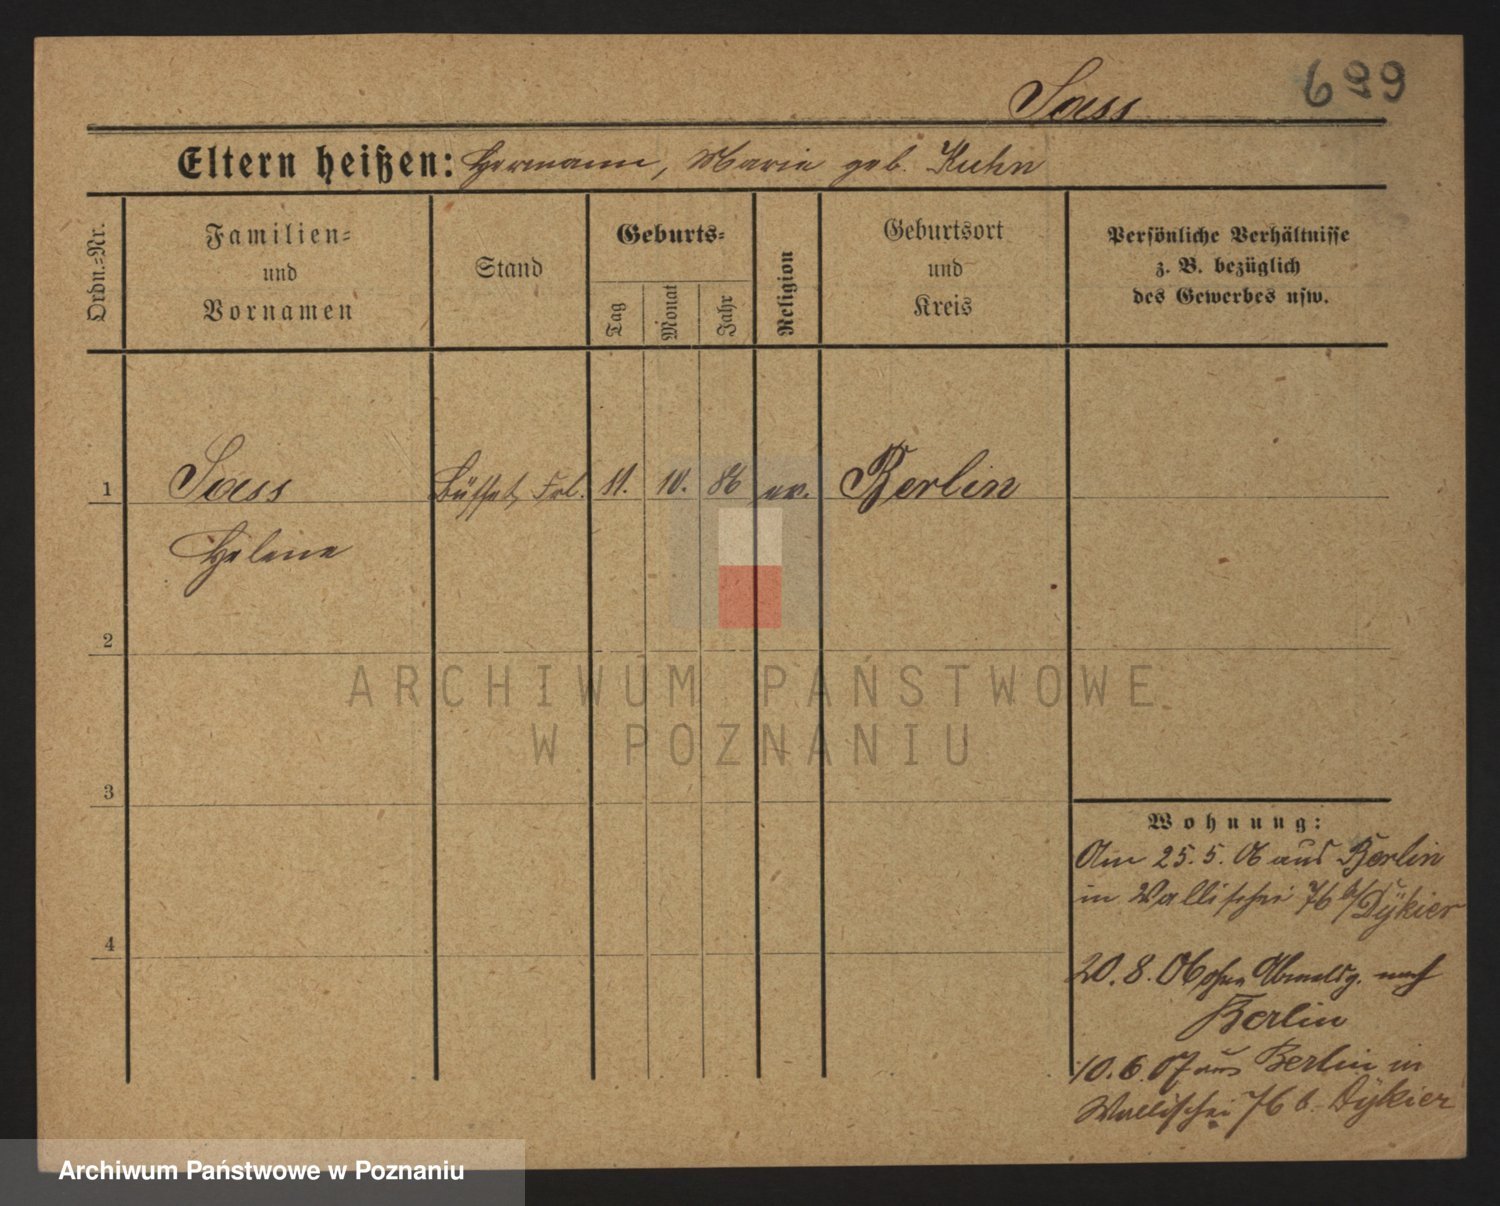 699
Sass
Eltern heißen: Hermann, Marie geb. Kuhn
Ordn.-Nr.
Familien-
und
Vornamen
Stand
Geburts-
Tag
Monat
Jahr
Religion
Geburtsort
und
Kreis
Persönliche Verhältnisse
z. B. bezüglich
des Gewerbes usw.
1
Sass
Helene
Büffet Frl.
11.
10.
86
ev.
Berlin
2
3
4
Wohnung:
Am 25.5.06 aus Berlin
in Wallischei 76 b/Dÿkier
20.8.06 ohne Abmeldg. nach
Berlin
10.6.07 aus Berlin in
Wallischei 76 b. Dÿkier
ARCHIWUM PAŃSTWOWE
W POZNANIU
Archiwum Państwowe w Poznaniu